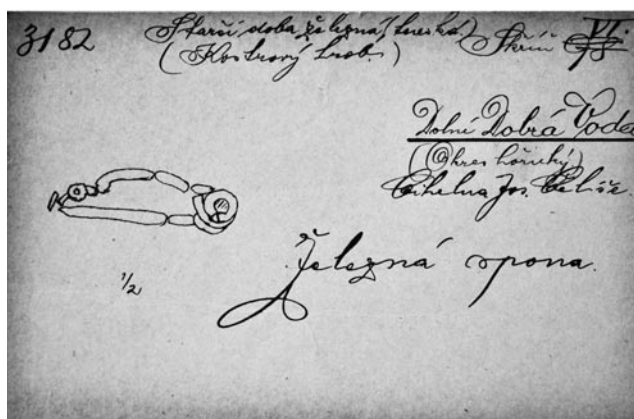 3182 Starší doba železná (tureská) Skříň VI.
(Kostrový hrob.)
Dolní Dobrá Voda
(Okres hořický)
Cihelna Jos. Čeliše.
1/2
Železná spona.